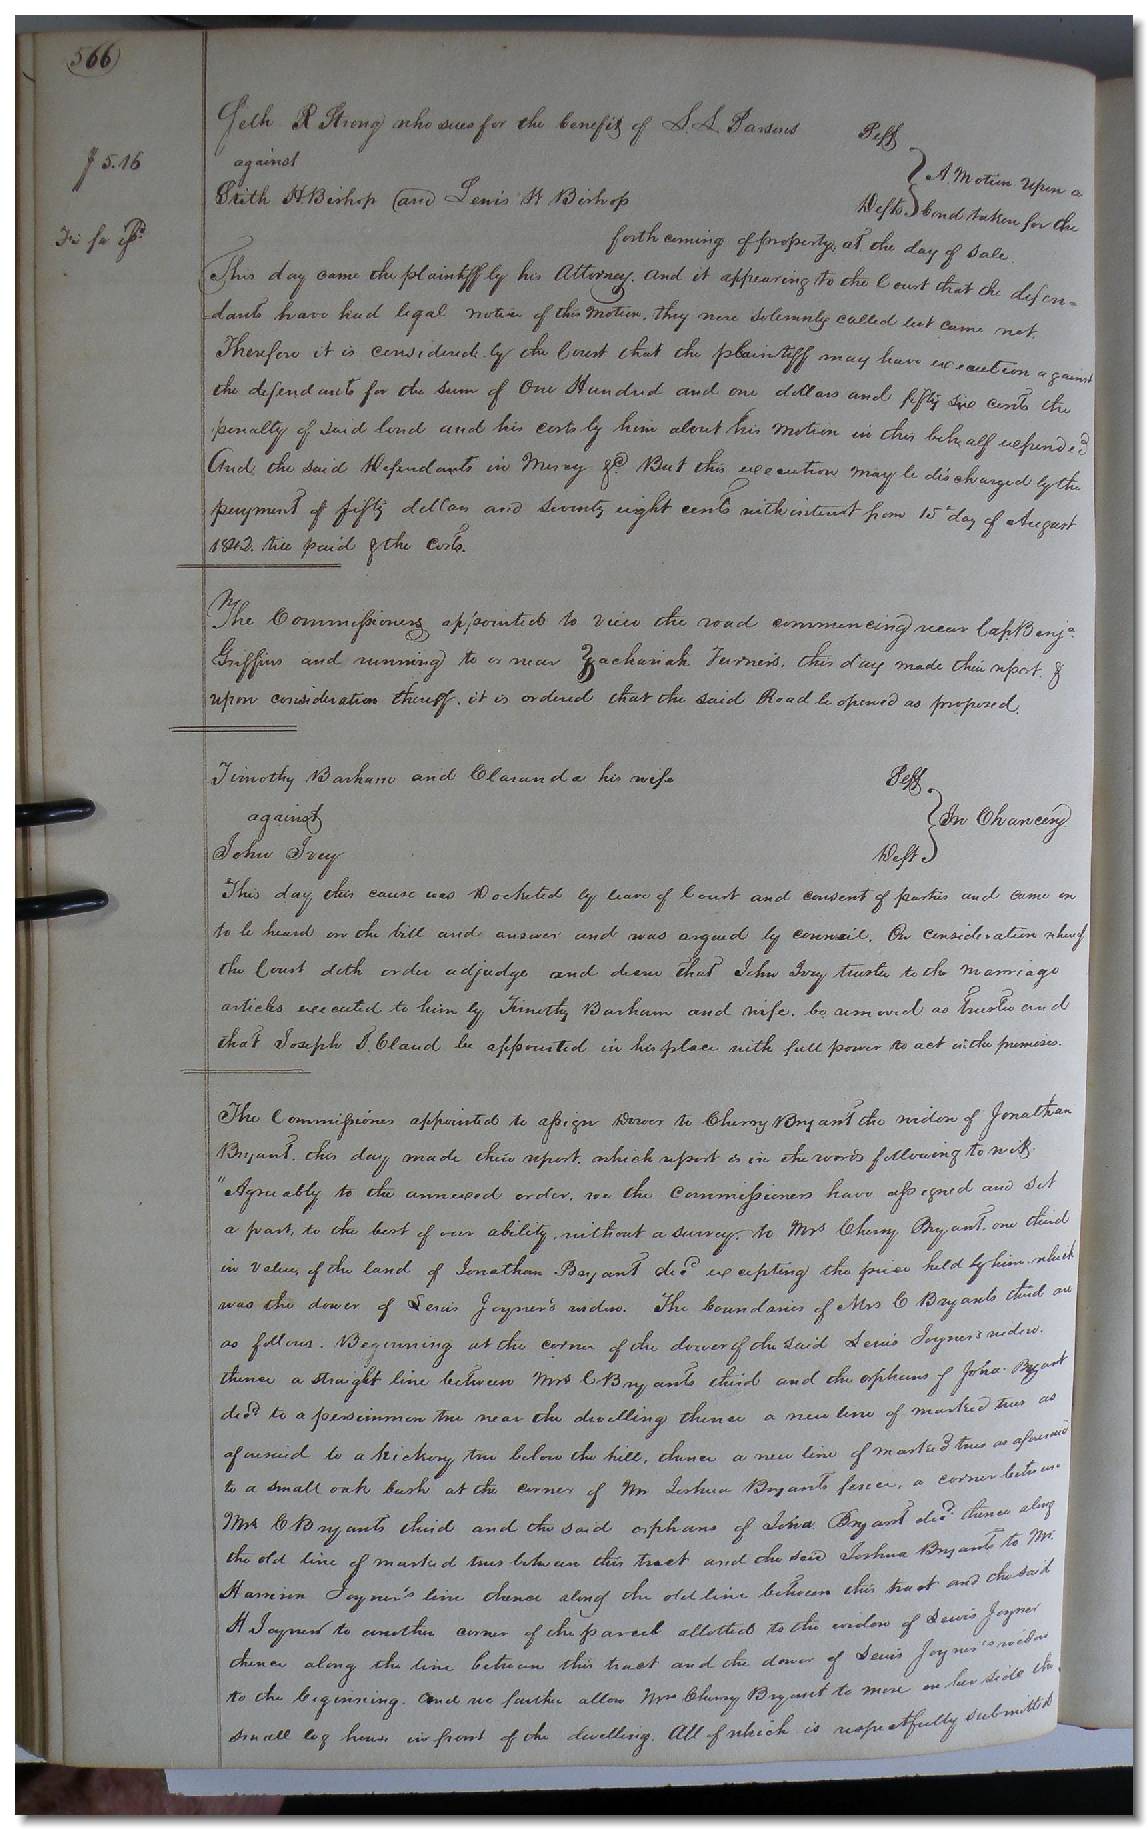 566
Seth R Strong who sues for the benefit of S. L Parsons Plff
against
$ 5.16
A Motion upon a
Seith H Bishop and Lewis H Bishop Defts bond taken for the
Fi fa
forthcoming of property, at the day of Sale.
This day came the plaintiff by his Attorney. and it appearing to the Court that the defen=
dants have had legal notice of this motion, they were Solemnly called but came not.
Therefore it is considered by the Court that the plaintiff may have execution against
the defendants for the sum of One Hundred and one dollars and fifty six cents the
penalty of said bond and his costs by him about his motion in this behalf expended
And the said Defendants in Mercy &c. But this execution may be discharged by the
payment of fifty dollars and seventy eight cents with interest from 15th day of August
1842. till paid & the costs.
The Commissioners appointed to view the road commencing near Cap. Benja
Griffins and running to or near Zachariah Turners. this day made their report. &
upon consideration thereof, it is ordered that the said Road be opened as proposed.
Timothy Barham and Clarunda his wife Plff
against In Chancery
John Ivey Deft
This day this cause was Docketed by leave of Court and consent of parties and came on
to be heard on the bill and answer and was argued by council. On consideration whereof
the Court doth order adjudge and decree that John Ivey trustee to the marriage
articles executed to him by Timothy Barham and wife. be removed as Trustee and
that Joseph T. Claud be appointed in his place with full power to act in the premises.
The Commissioners appointed to assign Dower to Cherry Bryant the widow of Jonathan
Bryant. this day made their report. which report is in the words following to wit.
"Agreeably to the annexed order, we the Commissioners have assigned and set
a part, to the best of our ability, without a survey, to Mrs Cherry Bryant. one third
in value, of the land of Jonathan Bryant decd excepting the piece held by him which
was the dower of Lewis Joyner's widow. The boundaries of Mrs C Bryants third are
as follows. Beginning at the corner of the dower of the said Lewis Joyner's widow.
thence a straight line between Mrs C Bryants third and the orphans of Jona. Bryant
decd to a persimmon tree near the dwelling thence a new line of marked trees as
aforesaid to a hickory tree below the hill, thence a new line of marked trees as aforesaid
to a small oak bush at the corner of Mr Joshua Bryants fence, a corner between
Mrs C Bryants third and the said orphans of Jona Bryant decd. thence along
the old line of marked trees between this tract and the said Joshua Bryants to Mr.
Harrison Joyner's line thence along the old line between this tract and the said
H Joyner to another corner of the parcel allotted to the widow of Lewis Joyner
thence along the line between this tract and the dower of Lewis Joyner's widow
to the beginning. and we further allow Mrs Cherry Bryant to move on her side the
small log house in front of the dwelling. All of which is respectfully submitted